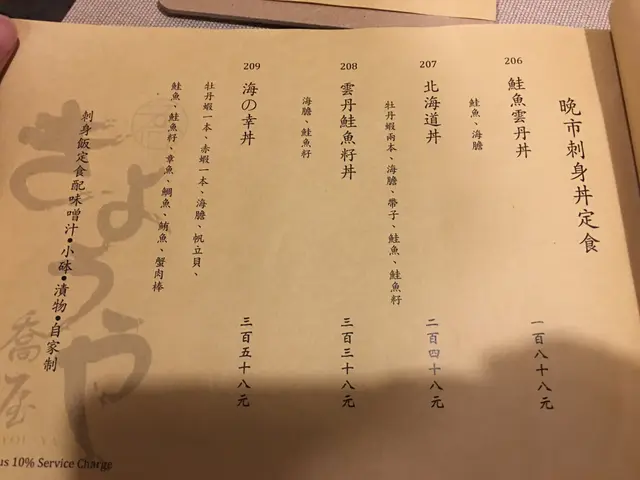 晚市刺身丼定食
206
鮭魚雲丹丼
鮭魚、海膽
一百八十八元
207
北海道丼
牡丹蝦兩本、海膽、帶子、鮭魚、鮭魚籽
二百四十八元
208
雲丹鮭魚籽丼
海膽、鮭魚籽
三百三十八元
209
海の幸丼
牡丹蝦一本、赤蝦一本、海膽、帆立貝、
鮭魚、鮭魚籽、章魚、鯛魚、鮪魚、蟹肉棒
三百五十八元
刺身飯定食配味噌汁•小砵•漬物•自家制
きょうや
喬屋
us 10% Service Charge